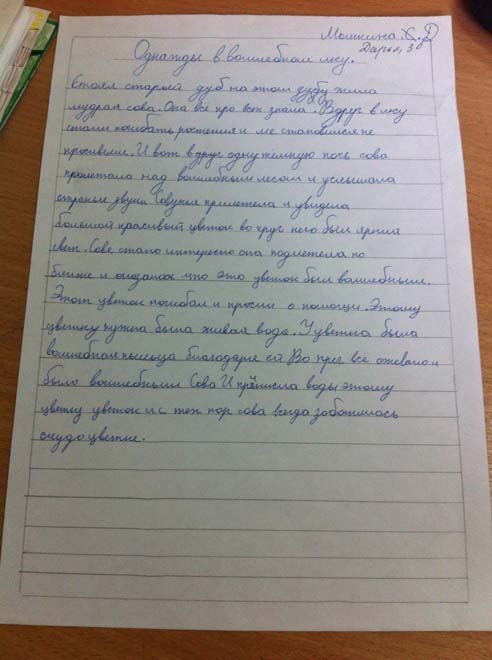 Мышкина
Дарья, 3
Однажды в волшебном лесу.
Стоял старый дуб на этом дубу жила
мудрая сова. Она все про всех знала. Вдруг в лесу
стали погибать ростения и лес становился не
красивым. И вот в друг одну темную ночь сова
пролетала над волшебным лесом и услышала
страные звуки Совунья прилетела и увидела
большой красивый цветок во круг него был яркий
свет. Сове стало интересно она подлетела по
ближе и оказалось что это цветок был волшебным.
Этот цветок погибал и просил о помощи. Этому
цветку нужна была живая вода. У цветка была
волшебная пыльца благодаря ей Во круг всё оживало и
было волшебным Сова И принисла воды этому
цветку цветок и с тех пор сова всегда заботилась
о чудо цветке.